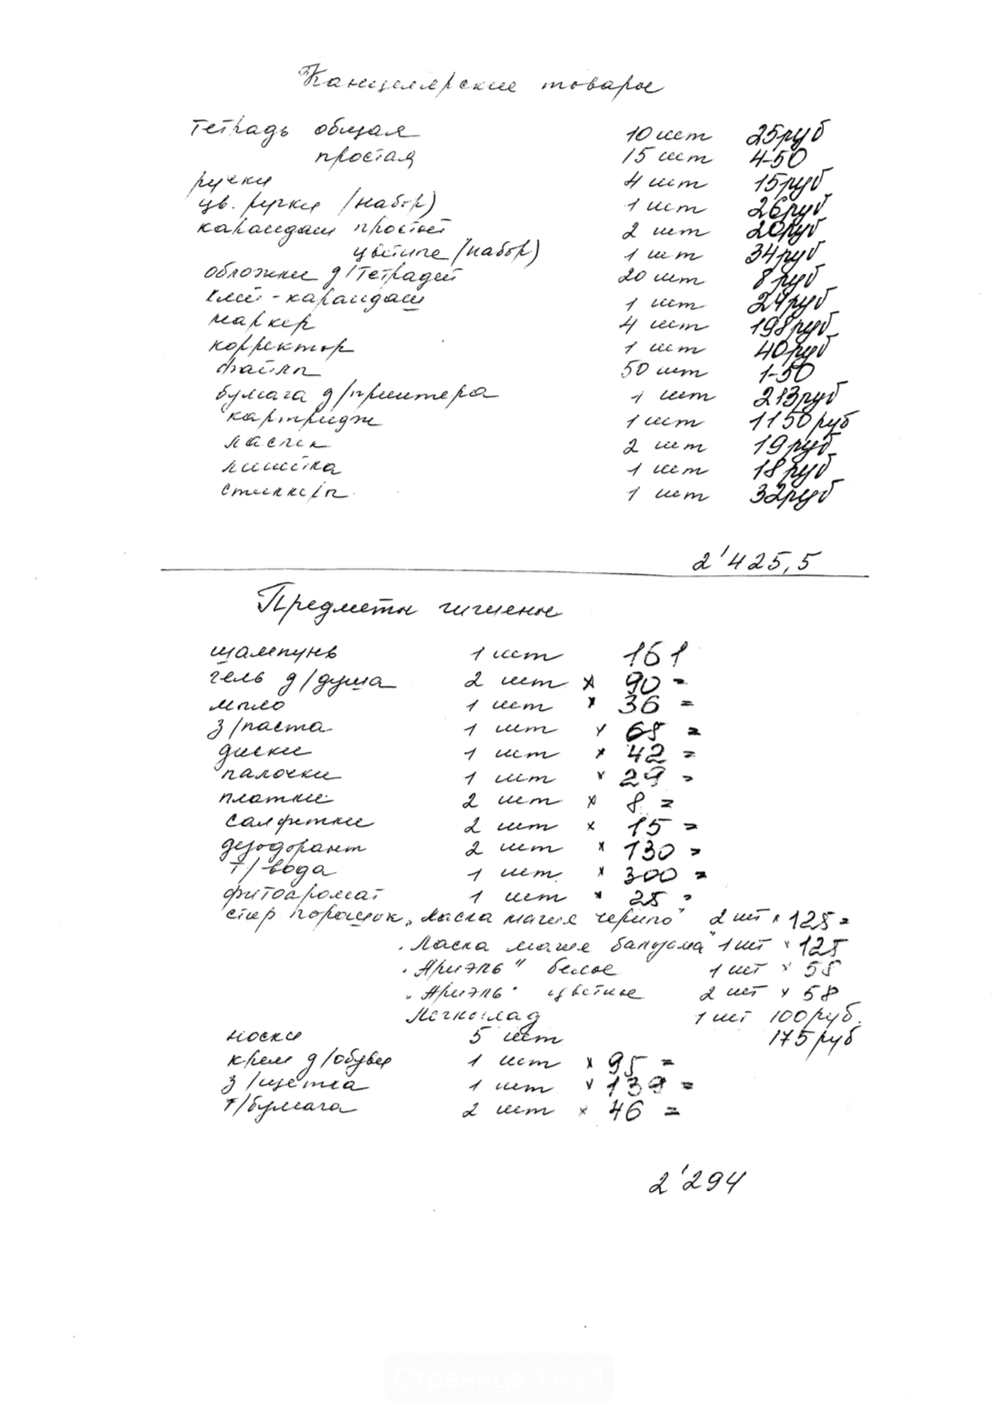 Канцелярские товары
тетрадь общая 10 шт 25руб
простая 15 шт 4-50
ручки 4 шт 15руб
цв. ручки /набор) 1 шт 26руб
карандаш простой 2 шт 20руб
цветные /набор) 1 шт 34руб
обложки д/тетрадей 20 шт 8руб
клей-карандаш 1 шт 24руб
маркер 4 шт 198руб
корректор 1 шт 40руб
файлы 50 шт 1-50
бумага д/принтера 1 шт 213руб
картридж 1 шт 1150руб
ластик 2 шт 19руб
линейка 1 шт 18руб
стикеры 1 шт 32руб
2'425,5
Предметы гигиены
шампунь 1 шт 161
гель д/душа 2 шт x 90 =
мыло 1 шт x 36 =
з/паста 1 шт x 68 =
диски 1 шт x 42 =
палочки 1 шт x 29 =
платки 2 шт x 8 =
салфетки 2 шт x 15 =
дезодорант 2 шт x 130 =
т/вода 1 шт. x 300 =
фитоаромат 1 шт x 28 =
стир порошок „Ласка магия черного" 2 шт x 125 =
„Ласка магия бальзам" 1 шт x 125
„Ариэль" белое 1 шт x 58
„Ариэль" цветные 2 шт x 58
1 шт 100руб.
носки 5 шт 175руб
крем д/обуви 1 шт x 95 =
з/щетка 1 шт x 139 =
т/бумага 2 шт x 46 =
2'294
Страница 1 из 1